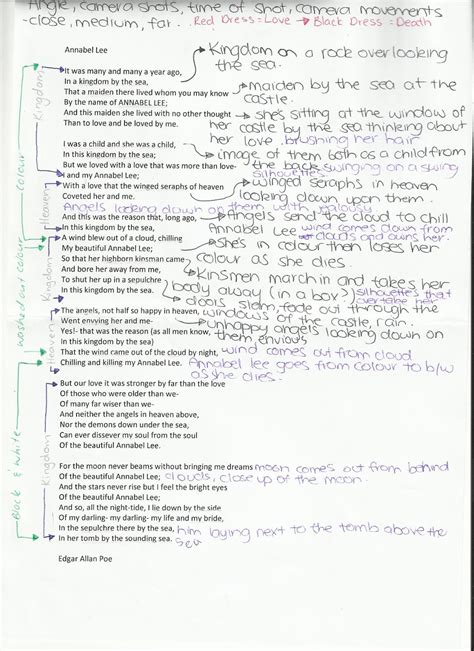 Angle, camera shots, time of shot, camera movements
-close, medium, far. Red Dress = Love → Black Dress = Death
Annabel Lee
Kingdom on a rock overlooking
the sea.
It was many and many a year ago,
In a kingdom by the sea,
That a maiden there lived whom you may know
By the name of ANNABEL LEE;
And this maiden she lived with no other thought
Than to love and be loved by me.
maiden by the sea at the
castle.
she's sitting at the window of
her castle by the sea thinking about
her love. brushing her hair
I was a child and she was a child,
In this kingdom by the sea;
But we loved with a love that was more than love-
I and my Annabel Lee;
With a love that the winged seraphs of heaven
Coveted her and me.
image of them both as a child from
the back swinging on a swing
silhouettes
winged seraphs in heaven
looking down upon them.
Angels looking down on them with jealousy
And this was the reason that, long ago,
In this kingdom by the sea,
A wind blew out of a cloud, chilling
My beautiful Annabel Lee;
So that her highborn kinsman came
And bore her away from me,
To shut her up in a sepulchre
In this kingdom by the sea.
Angels send the cloud to chill
Annabel Lee wind comes down from
clouds and owns her.
she's in colour then loses her
colour as she dies.
Kinsmen march in and takes her
body away (in a box) silhouettes that
overtake her
doors slam, fade out through the
windows of the castle, rain.
The angels, not half so happy in heaven,
Went envying her and me-
Yes!- that was the reason (as all men know,
In this kingdom by the sea)
That the wind came out of the cloud by night,
Chilling and killing my Annabel Lee.
unhappy angels looking down on
them, envious
wind comes out from cloud
Annabel lee goes from colour to b/w
as she dies.
But our love it was stronger by far than the love
Of those who were older than we-
Of many far wiser than we-
And neither the angels in heaven above,
Nor the demons down under the sea,
Can ever dissever my soul from the soul
Of the beautiful Annabel Lee.
For the moon never beams without bringing me dreams
Of the beautiful Annabel Lee;
And the stars never rise but I feel the bright eyes
Of the beautiful Annabel Lee;
And so, all the night-tide, I lie down by the side
Of my darling- my darling- my life and my bride,
In the sepulchre there by the sea,
In her tomb by the sounding sea.
moon comes out from behind
clouds, close up of the moon.
him laying next to the tomb above the
sea
Edgar Allan Poe
Kingdom
Heaven
Kingdom
Heaven
Kingdom
colour
washed out colour
Black & white